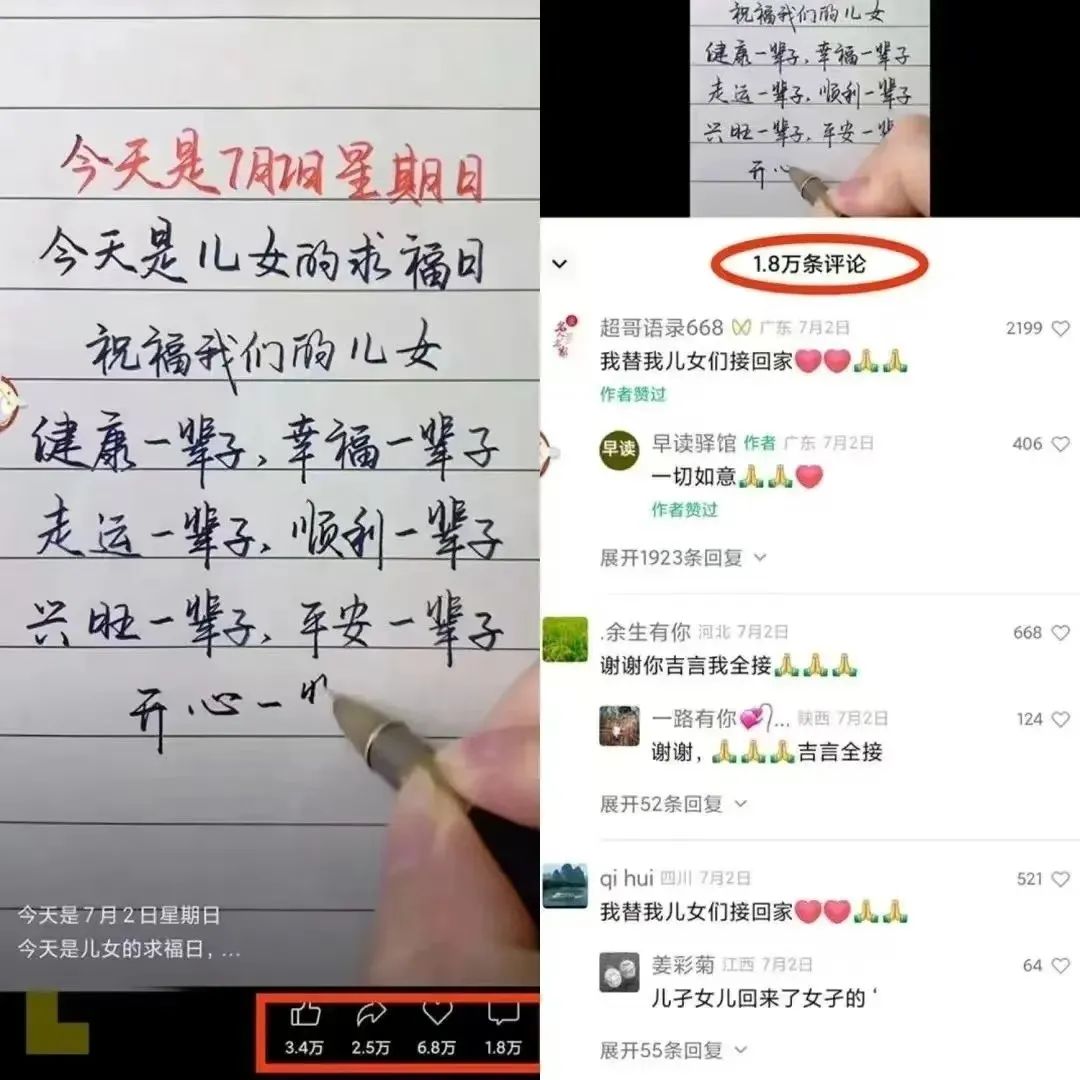 今天是7月2日星期日
今天是儿女的求福日
祝福我们的儿女
健康一辈子,幸福一辈子
走运一辈子,顺利一辈子
兴旺一辈子,平安一辈子
开心一
今天是7月2日星期日
今天是儿女的求福日，...
3.4万 2.5万 6.8万 1.8万
祝福我们的儿女
健康一辈子,幸福一辈子
走运一辈子,顺利一辈子
兴旺一辈子,平安一
开心
1.8万条评论
超哥语录668 广东 7月2日 2199
我替我儿女们接回家❤️❤️🙏🙏
作者赞过
早读
早读驿馆 作者 广东 7月2日 406
一切如意🙏🙏❤️
作者赞过
展开1923条回复
.余生有你 河北 7月2日 668
谢谢你吉言我全接🙏🙏🙏
一路有你💞... 陕西 7月2日 124
谢谢，🙏🙏🙏吉言全接
展开52条回复
qi hui 四川 7月2日 521
我替我儿女们接回家❤️❤️🙏🙏
姜彩菊 江西 7月2日 64
儿孑女儿回来了女孑的‘
展开55条回复